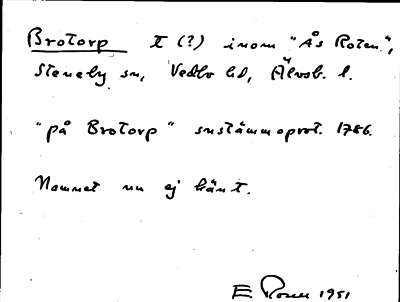 Brotorp t (?) inom "Ås Roten",
Steneby sn, Vedbo hd, Älvsb. l.
"på Brotorp" sustämmoprot. 1786.
Namnet nu ej känt.
E Rosell 1951